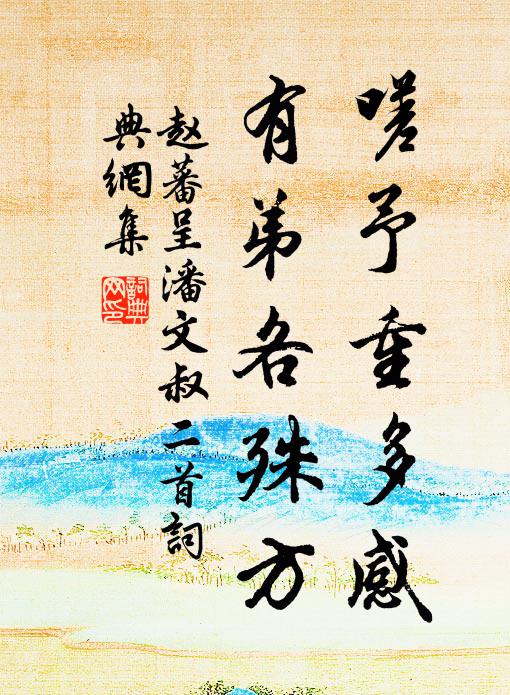 嗟予重多感
有弟各殊方
赵蕃呈潘文叔二首詞
典網集
詞典網印